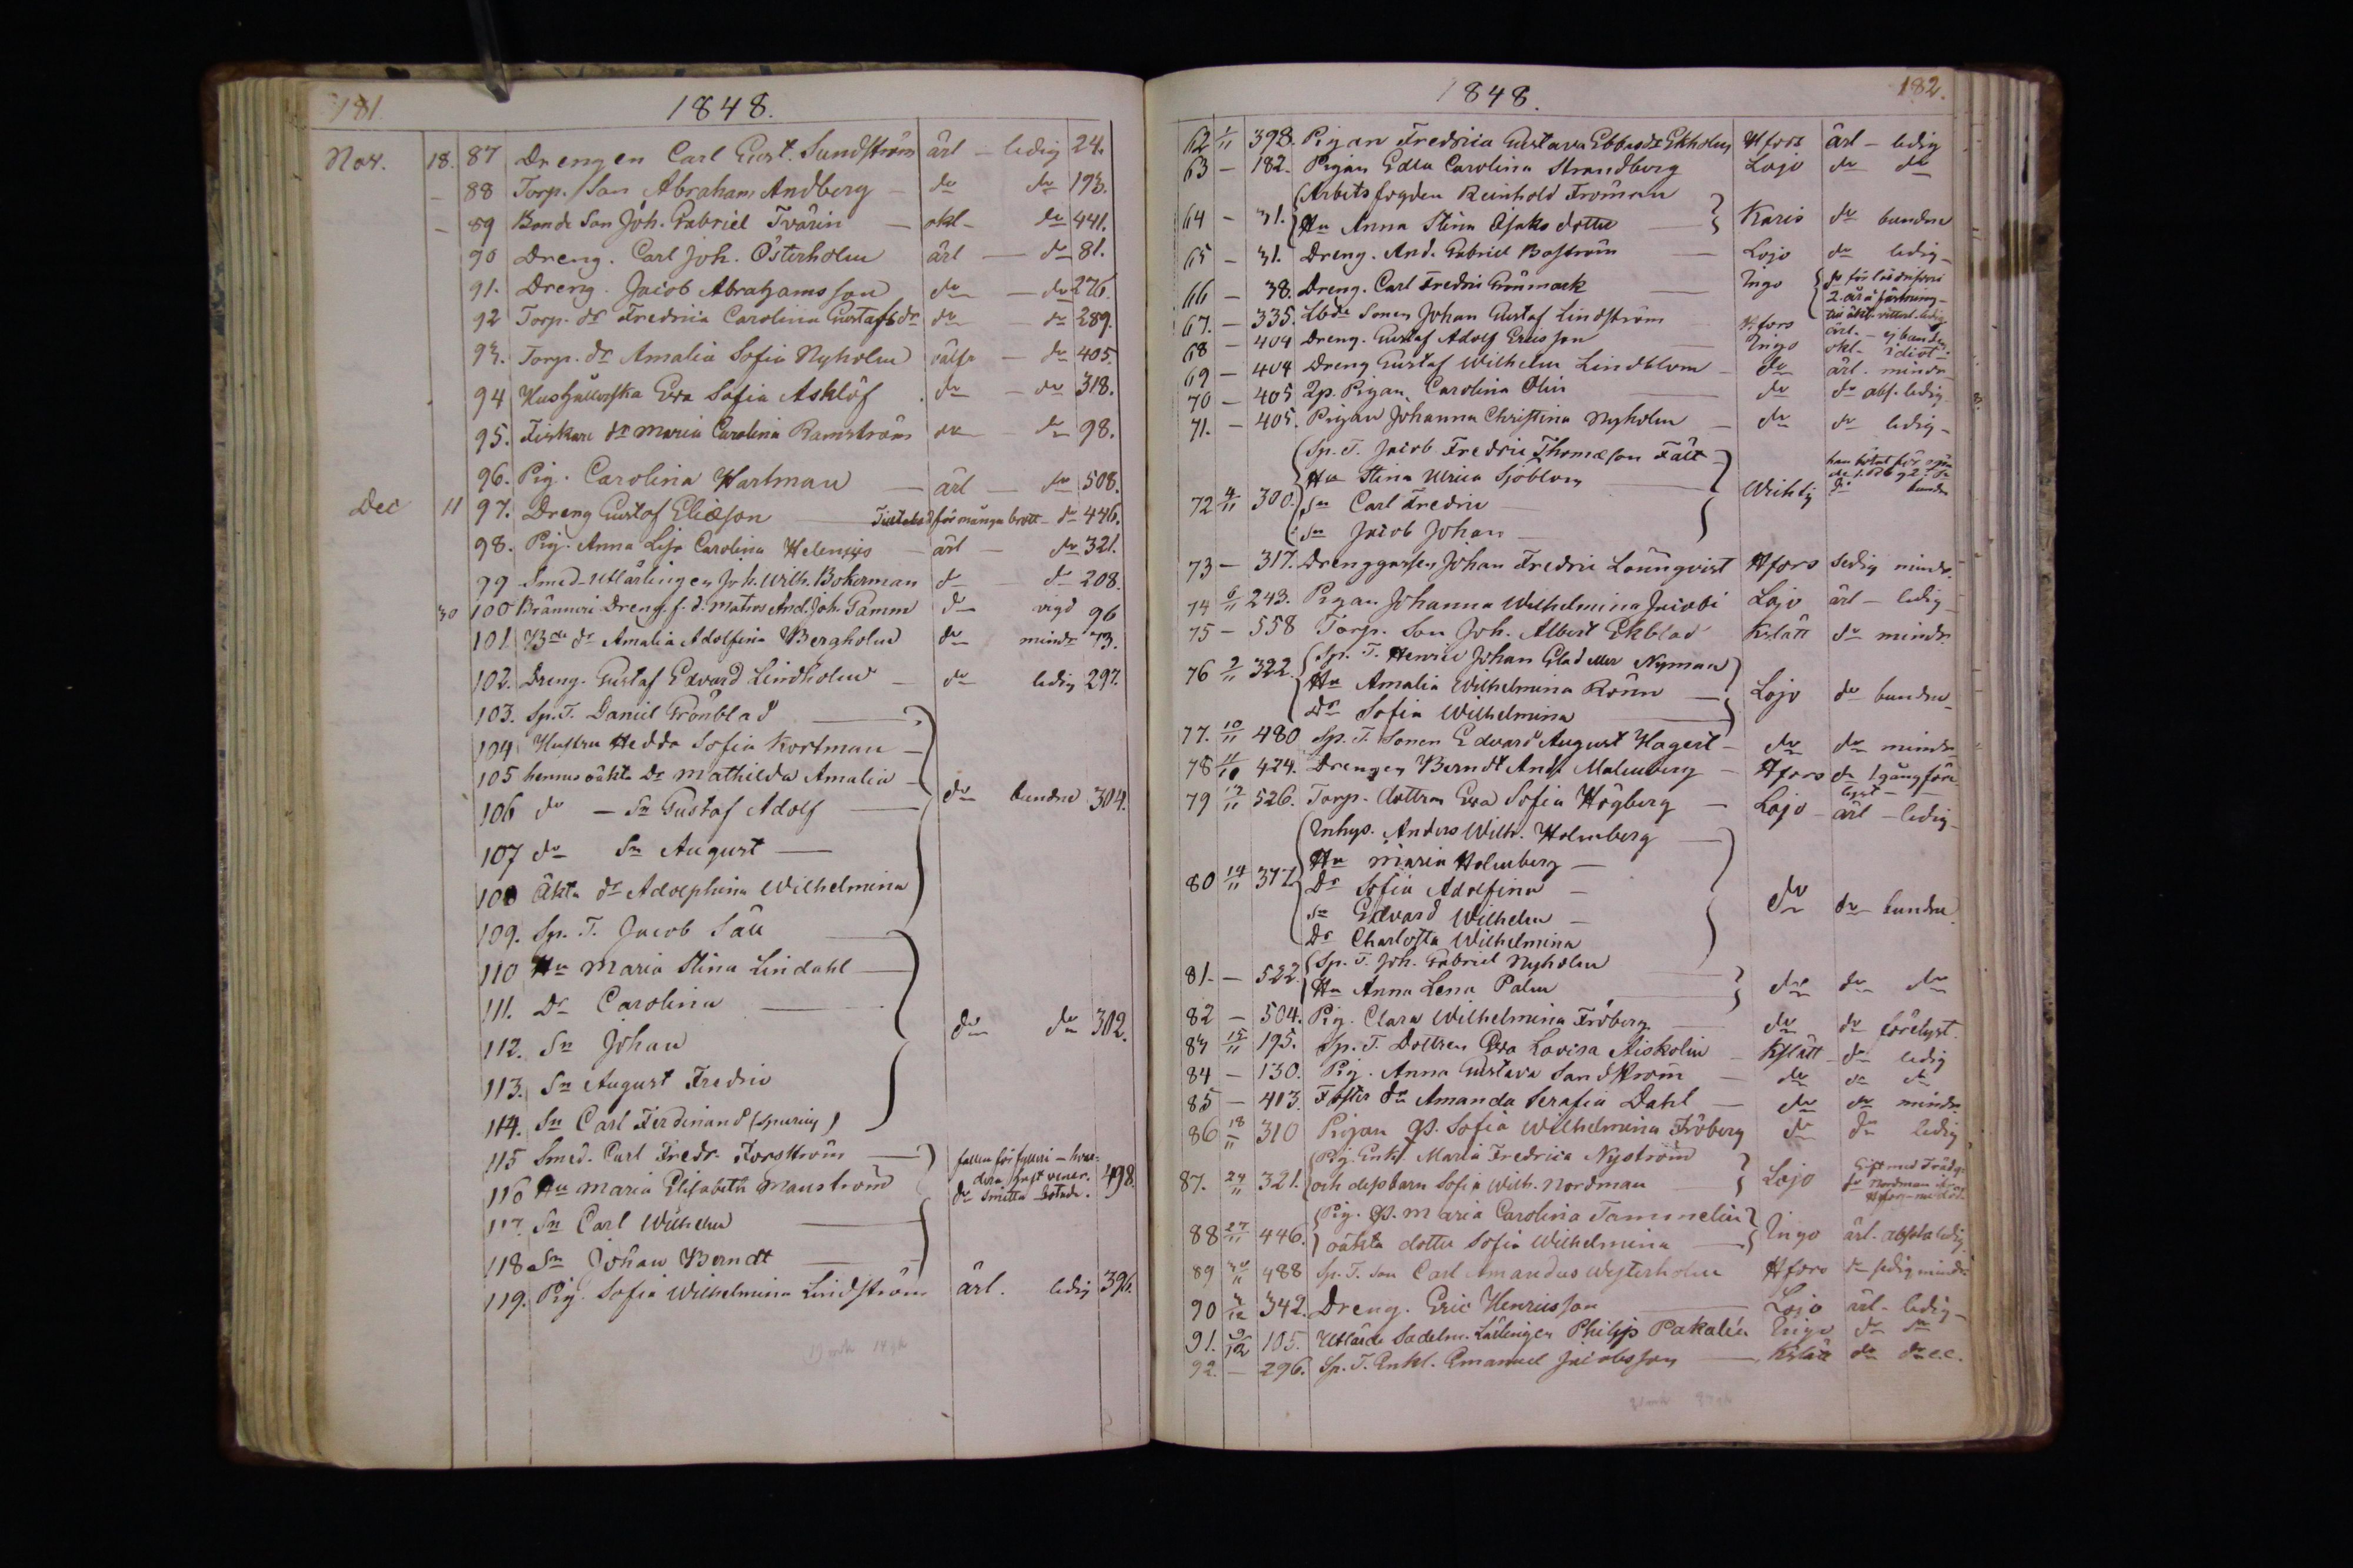 181 1848.
Nov. 18. 87 Drengen Carl Gust. Sundström ärl – ledig 24.
– 88 Torp. Son Abraham Andberg – do do 193.
– 89 Bonde Son Joh. Gabriel Tvärin – okl – do 441.
90 Dreng. Carl Joh. Österholm ärl – do 81.
91. Dreng. Jacob Abrahamsson do – do 276.
92 Torp. dr Fredrica Carolina Gustafsdr do – do 289.
93. Torp. dr Amalia Sofia Nyholm – do 405.
94 Hushållerska Eva Sofia Asklöf do – do 318.
95. Fiskare dr Maria Carolina Ramström do do 98.
96. Pig. Carolina Hartman – ärl – do 508.
Dec 11 97. Dreng Gustaf Eliæson för många brott – do 446.
98. Pig. Anna Lisa Carolina Helenius – ärl – do 321.
99 Smed-Utlärlingen Joh. Wilh. Bokerman do – do 208.
30 100 Bränneri Dreng. f. d. Matros And. Joh. Tamm do vigd 96
101 Bde dr Amalia Adolfina Bergholm do mindr 73.
102. Dreng. Gustaf Edvard Lindholm – do ledig 297.
103. Sp. T. Daniel Grönblad
104 Hustru Hedda Sofia Kortman –
105 hennes oäkta Dr Mathilda Amalia –
106 do – Sn Gustaf Adolf – do bundne 304.
107 do Sn August –
108 äkta dr Adolphina Wilhelmina
109. Sp. T. Jacob Säll
110 Hu Maria Stina Lindahl –
111. Dr Carolina
112. Sn Johan do do 302.
113. Sn August Fredric
114. Sn Carl Ferdinand (spurius)
115 Smed. Carl Fredr. Forsström – fallen för fylleri –
116 Hu Maria Elisabeth Manström do smitta botade. 498.
117. Sn Carl Wilhelm
118 Sn Johan Berndt
119. Pig. Sofia Wilhelmina Lindström ärl. ledig 396.
1848. 182.
62 1/11 398. Pigan Fredrica Gustava Ebbasdr Ekholm Hfors ärl – ledig
63 – 182. Pigan Edla Carolina Strandberg Lojo do do
Arbetsfogden Reinhold Froman
64 – 31. Hu Anna Stina Isaks dotter Karis do bundne
65 – 31. Dreng. And. Gabriel Boström – Lojo do ledig –
66 – 38. Dreng. Carl Fredric Grönmark Ingo
67. – 335. Sonen Johan Gustaf Lindström Hfors
68 – 404 Dreng. Gustaf Adolf Ericsson Ingo okl – idiot –
69 – 404 Dreng Gustaf Wilhelm Lindblom – do ärl. mindr
70 – 405 Qp. Pigan Carolina Olin do do abs. ledig
71. – 405. Pigan Johanna Christina Nyholm – do do ledig –
Sp. T. Jacob Fredric Thomæson Fält
Hu Stina Ulrica Sjöblom
72 4/11 300. Sn Carl Fredric Wichtis do bundne
Sn Jacob Johan
73 – 317. Drenggossen Johan Fredric Lönnqvist Hfors sedig mindr.
74 6/11 243. Pigan Johanna Wilhelmina Jacobi Lojo ärl – ledig
75 – 558 Torp. Son Joh. Albert Ekblad Kslätt do mindr.
Sp. T. Henric Johan Glad eller Nyman
76 9/11 322. Hu Amalia Wilhelmina Rönn – Lojo do bundne
Dr Sofia Wilhelmina
77. 10/11 480 Sp. T. Sonen Edvard August Hagert – do do mindr
78 424. Drengen Berndt And. Malmberg – Hfors do 1 gång före
lyst –
79 12/11 526. Torp. dottren Eva Sofia Högberg – Lojo – ärl – ledig
Inhys. Anders Wilh. Holmberg
Hu Maria Holmberg –
80 14/11 377. Dr Sofia Adolfina – do do bundne
Sn Edvard Wilhelm –
Dr Charlotta Wilhelmina
Sp. T. Joh. Gabriel Nyholm
81. – 522 Hu Anna Lena Palm do do do
82 – 504. Pig. Clara Wilhelmina Fröberg do do förelyst
83 15/11 195. Sp. T. Dottren Eva Lovisa Aiskolin – Kslätt – do ledig
84 – 130. Pig. Anna Gustava Sandström – do do do
85 – 413. Foster dr Amanda Serafia Dahl – do do mindr.
86 18/11 310 Pigan Qp. Sofia Wilhelmina Fröberg do do ledig
Pig. Enk. Maria Fredrica Nyström
87. 24/11 321. och dess barn Sofia Wilh. Nordman Lojo Gift med
Pig. Qp. Maria Carolina Tammelin
88 27/11 446. oäkta dotter Sofia Wilhelmina – Ingo ärl – absolv. ledig
89 30/11 488 Sp. T. Son Carl Amandus Westerholm Hfors do sedig mindr
90 342. Dreng. Eric Henricsson Lojo ärl – ledig –
91. 9/12 105. Utlärde Sadelm. Lärlingen Philip Pakalén Ingo do do
92. – 296. Sp. T. Enkl. Emanuel Jacobsson – Kslätt do do e.c.